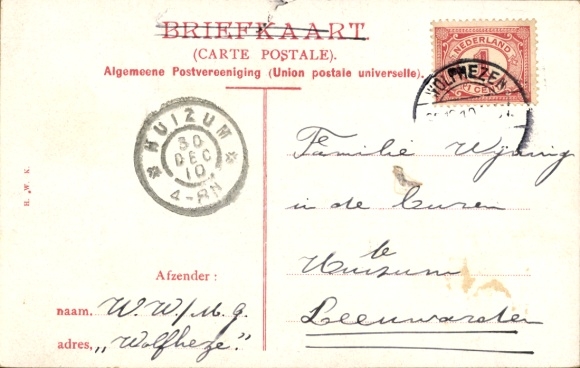 BRIEFKAART.
(CARTE POSTALE).
Algemeene Postvereeniging (Union postale universelle).
NEDERLAND
1
CENT
WOLFHEZEN
HUIZUM
30
DEC
10
4-8N
Familie
in de
te
Huizum
Leeuwarden
H. W. K.
Afzender:
naam. W. W/M. G.
adres, "Wolfheze".